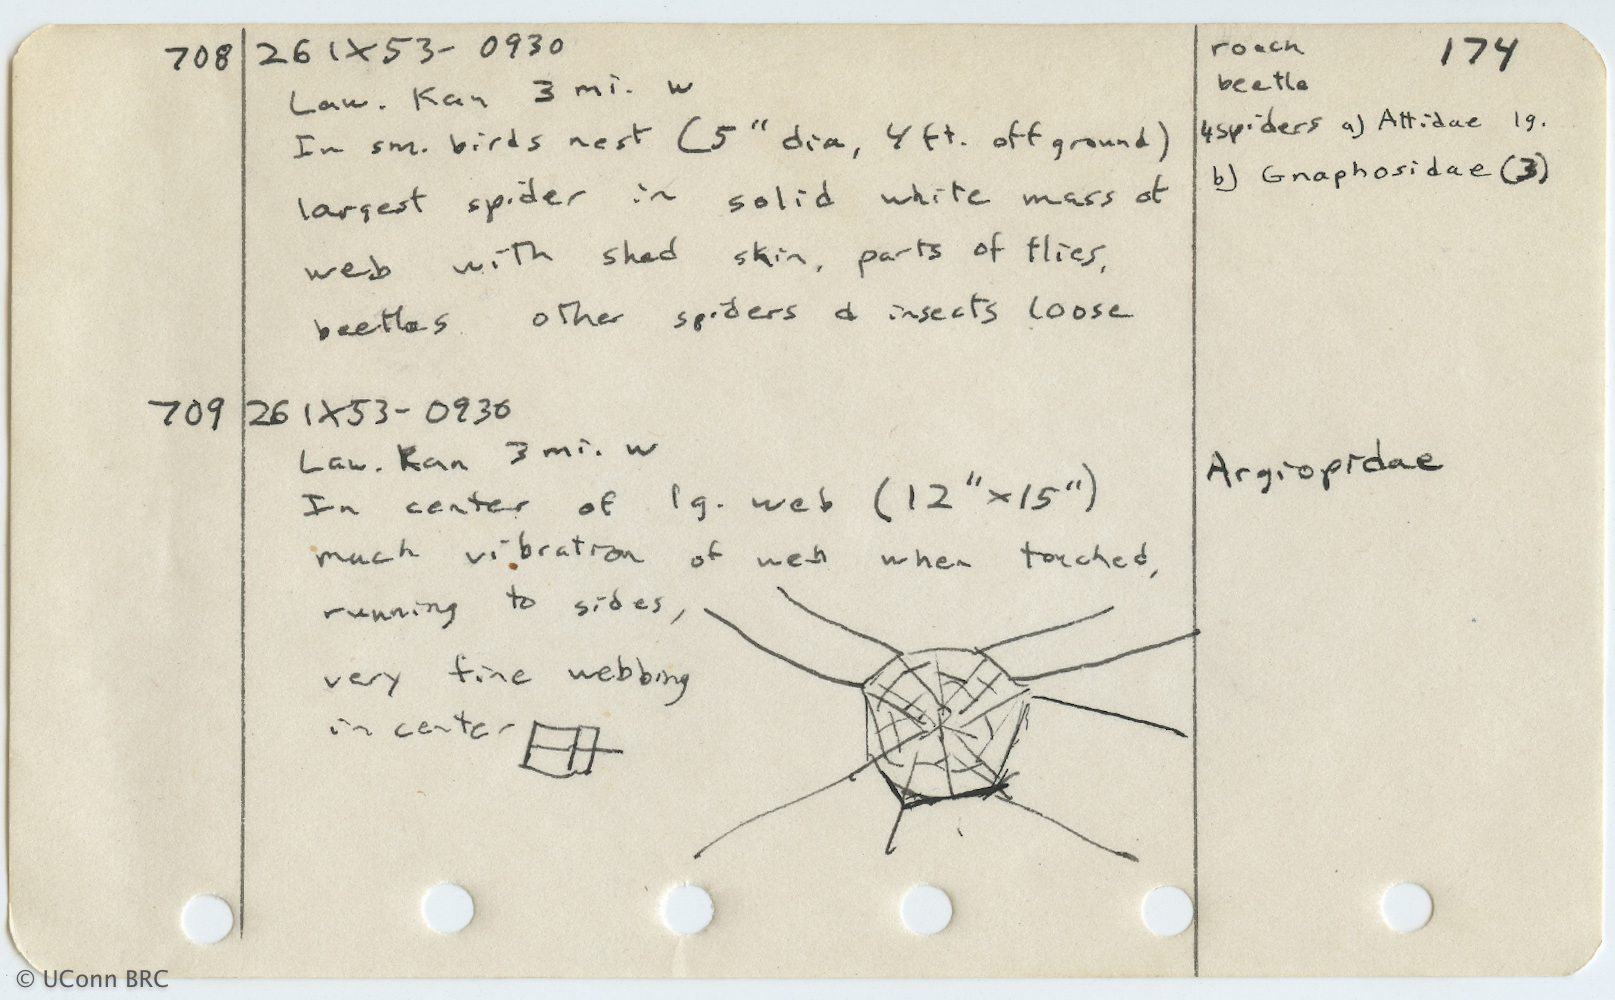 708 26 IX 53- 0930 roach 174
Law. Kan 3 mi. W beetle
In sm. birds nest (5" dia, 4 ft. off ground) 4 spiders a) Attidae lg.
largest spider in solid white mass of b) Gnaphosidae (3)
web with shed skin, parts of flies,
beetles other spiders & insects loose
709 26 IX 53- 0930
Law. Kan 3 mi. W Argiopidae
In center of lg. web (12" x 15")
much vibration of web when touched,
running to sides,
very fine webbing
in center
© UConn BRC